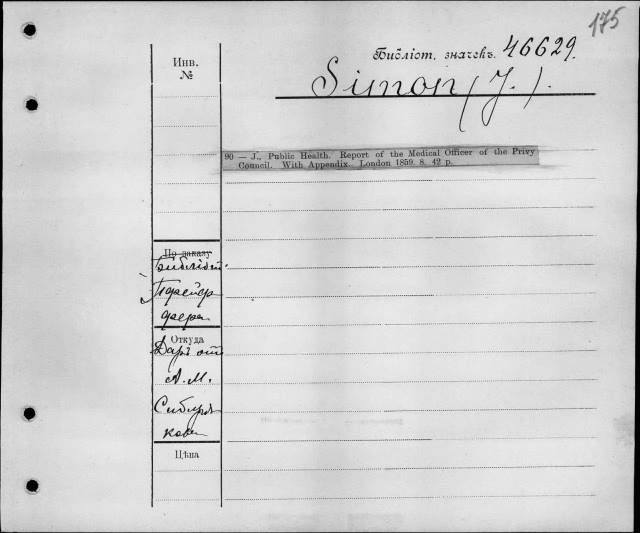 175
Библіот. значекъ. 46629.
Инв.
№
Simon (J.).
90 — J., Public Health. Report of the Medical Officer of the Privy
Council. With Appendix. London 1859. 8. 42 p.
По заказу
Библіот.
Пфейф
фера
Откуда
Даръ от
А. М.
Сибиря
кова
Цѣна